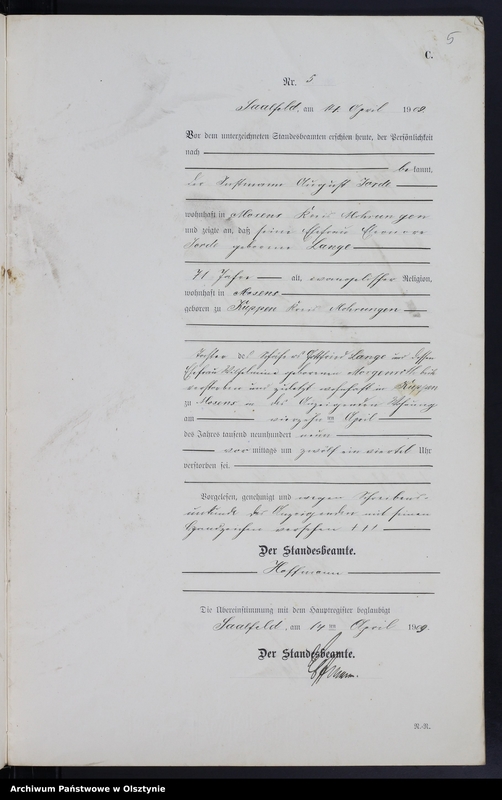 5
C.
Nr. 5
Saalfeld, am 14 April 1909.
Vor dem unterzeichneten Standesbeamten erschien heute, der Persönlichkeit
nach
bekannt,
der Instmann August Jorde
wohnhaft in Mosens Kreis Mohrungen
und zeigte an, daß seine Ehefrau
Jorde geborene Lange
71 Jahre alt, evangelischer Religion,
wohnhaft in Mosens
geboren zu Kuppen Kreis Mohrungen
Tochter des Gottfried Lange und dessen
Ehefrau Wilhelmine geborenen Morgenroth, beide
verstorben und zuletzt wohnhaft in Kuppen
zu Mosens in des Anzeigenden Wohnung
am vierzehnten April
des Jahres tausend neunhundert neun
vormittags um zwölf ein viertel Uhr
verstorben sei.
Vorgelesen, genehmigt und wegen Schreibens-
unkunde des Anzeigenden mit seinem
Handzeichen versehen †††
Der Standesbeamte.
Hoffmann
Die Übereinstimmung mit dem Hauptregister beglaubigt
Saalfeld, am 14ten April 1909.
Der Standesbeamte.
Hoffmann.
N.-R.
Archiwum Państwowe w Olsztynie